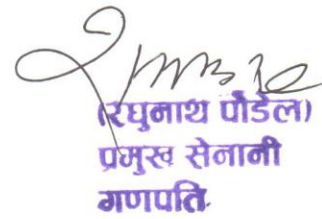 (रघुनाथ पौडेल)
प्रमुख सेनानी
गणपति.